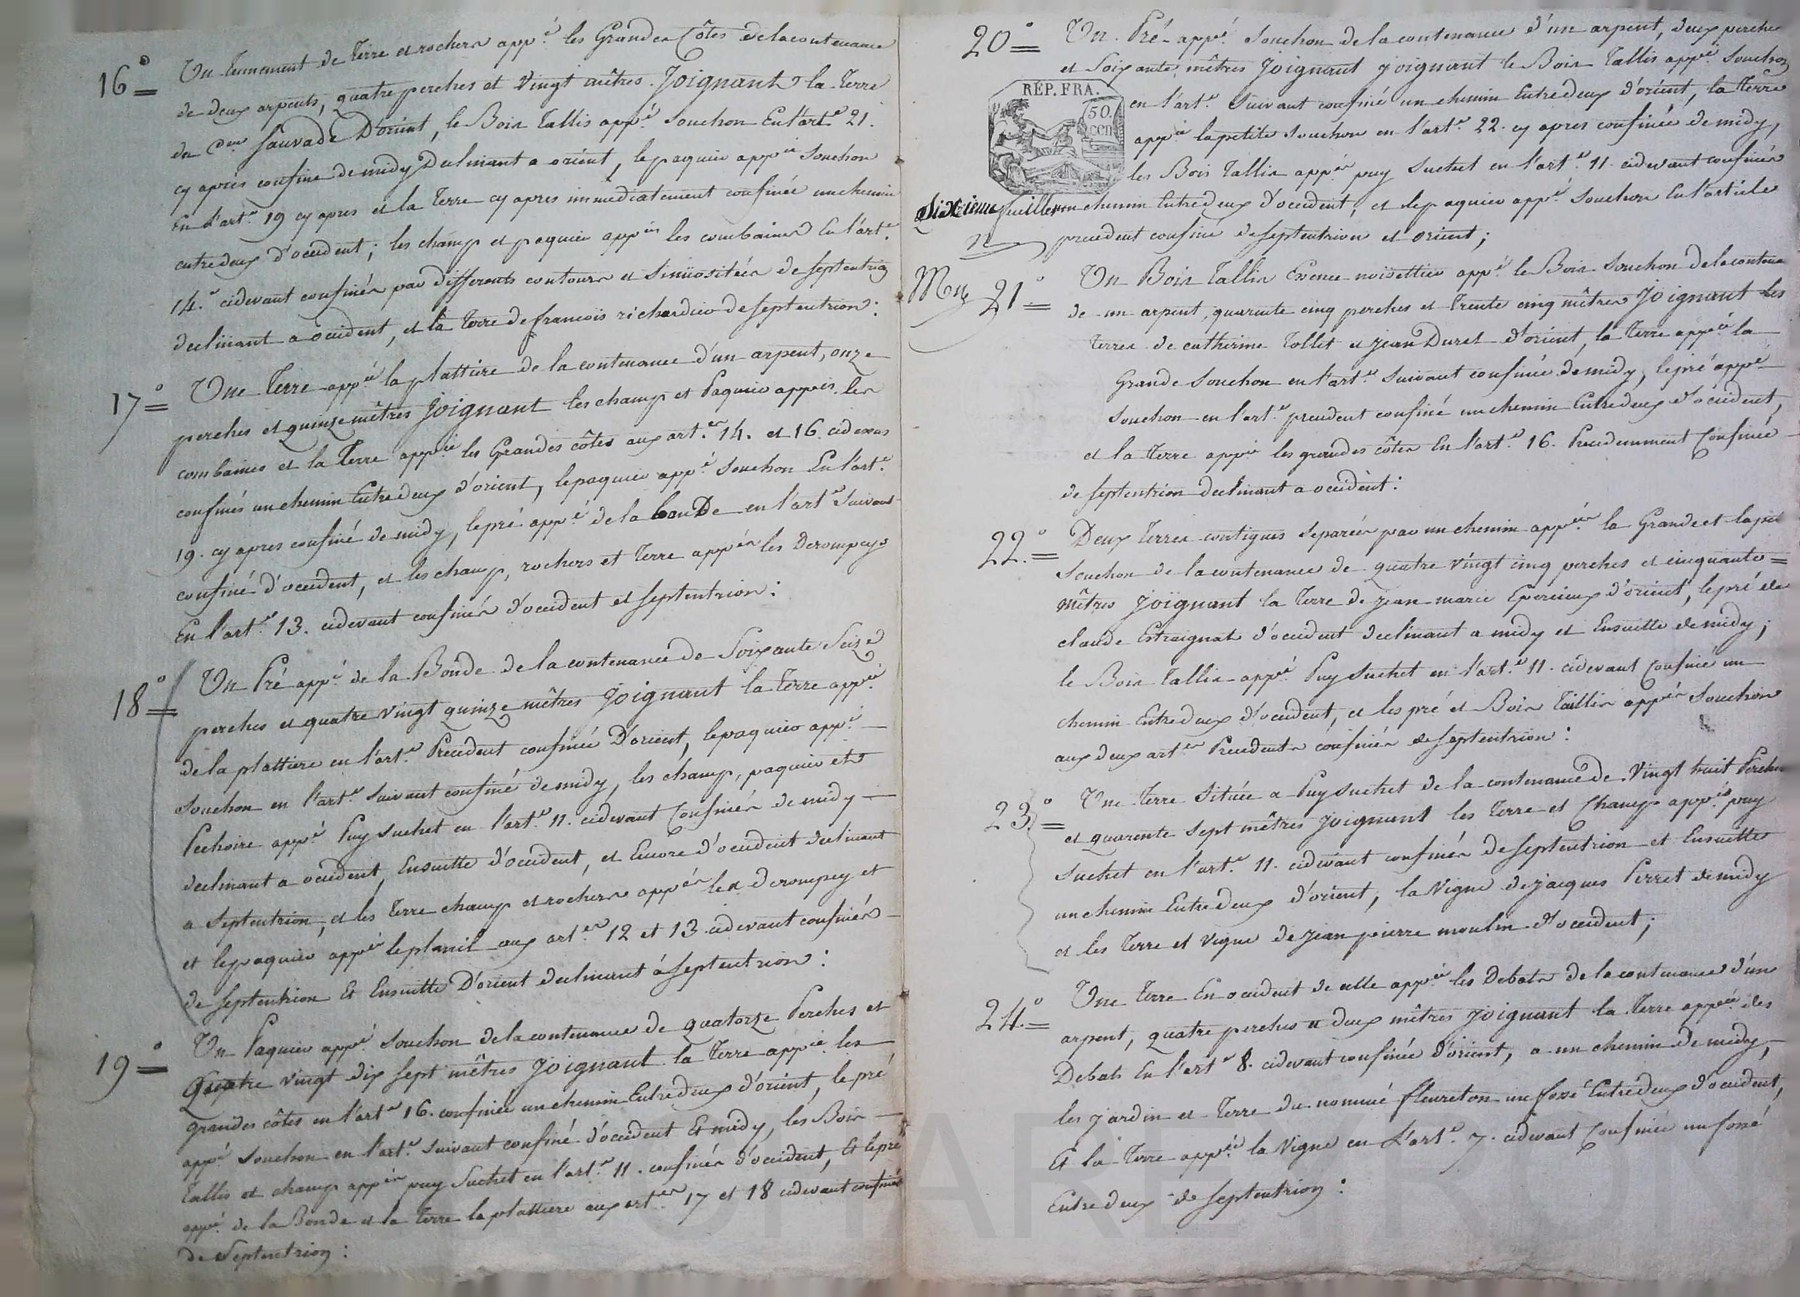 16° Un tennement de Terre et rochers app.é les Grandes Côtes de la contenance
de deux arpents, quatre perches et vingt mêtres. Joignant la Terre
du c.en Sauvade D'orient, le Bois Tallis app.é Souchon En l'art.e 21.
cy après confiné de midy Declinant a orient, le paquier app.é Souchon
En l'art.e 19 cy apres et la Terre cy apres immediatement confinée un chemin
entredeux d'occident; les champ et paquier app.és les combaines En l'art.e
14.e cidevant confinés par differents contours et Sinuosités de septentrion
declinant a occident, et la Terre de francois richardier de septentrion:
17° Une Terre app.ée la plattiere de la contenance d'un arpent, onze
perches et quinze mêtres Joignant les champ et Paquier app.és les
combaines et la Terre app.ée les Grandes côtes aux art.es 14. et 16. cidessus
confinés un chemin Entredeux d'orient, le paquier app.é Souchon En l'art.e
19. cy apres confiné de midy, le pré app.é de la bouDe en l'art.e Suivant
confiné d'occident, et les champ, rochers et Terre app.és les Derompeys
En l'art.e 13. cidevant confinés d'occident et septentrion:
18° Un Pré app.é de la Bonde de la contenance de Soixante Seize
perches et quatre vingt quinze mêtres Joignant la Terre app.ée
de la plattiere en l'art.e Precedent confinée D'orient, le paquier app.é
Souchon en l'art.e suivant confiné de midy, les champ, paquier et
Pechoire app.é Puy Suchet en l'art.e 11. cidevant Confinés de midy
declinant a occident, Ensuitte d'occident, et Encore d'occident declinant
a Septentrion, et les Terre champ et rochers app.és les derompey et
et le paquier app.é le planil aux art.es 12 et 13 cidevant confinés
de septentrion Et Ensuitte D'orient declinant à septentrion:
19° Un Paquier app.é Souchon de la contenance de quatorze Perches et
Quatre vingt dix sept mêtres Joignant la Terre app.ée les
grandes côtes en l'art.e 16. confinée un chemin Entredeux d'orient, le pré
app.é Souchon en l'art.e suivant confiné d'occident Et midy, les Bois
Tallis et champ app.és puy Suchet en l'art.e 11. confinés d'occident, Et le pré
app.é de la Bonde et la Terre la plattiere aux art.es 17 et 18 cidevant confinés
de Septentrion:
20° Un Pré app.é Souchon de la contenance d'un arpent, deux perches
et Soixante mêtres Joignant joignant le Bois Tallis app.é Souchon
RÉP. FRA.
50.
cen
en l'art.e Suivant confiné un chemin Entredeux d'orient, la Terre
app.ée la petite Souchon en l'art.e 22. cy apres confinée de midy,
les Bois Tallis app.és puy Suchet en l'art.e 11. cidevant confinés
Sixieme feuille
un chemin Entredeux d'occident, et le paquier app.é Souchon En l'article
precedent confiné de septentrion et orient;
21° Un Bois Tallis Essence noisettier app.é le Bois Souchon de la contenance
de un arpent, quarente cinq perches et Trente cinq mêtres Joignant les
terres de catherine Tollet et jean Duret d'orient, la Terre app.ée la
Grande Souchon en l'art.e Suivant confinée de midy, le pré app.é
Souchon en l'art.e precedent confiné un chemin Entredeux d'occident,
et la Terre app.ée les grandes côtes En l'art.e 16. Precedemment Confinée
de septentrion declinant a occident:
22.° Deux Terres contigues separées par un chemin app.ées la Grande et la petite
Souchon de la contenance de quatre vingt cinq perches et cinquante
mêtres Joignant la Terre de jean marie Epercieux d'orient, le pré de
claude Estraignat d'occident declinant a midy et Ensuitte de midy;
le Bois Tallis app.é Puy Suchet en l'art.e 11. cidevant Confiné un
chemin Entredeux d'occident, et les pré et Bois Taillis app.és Souchon
aux deux art.es Precedents confinés de septentrion:
23.° Une Terre Située a Puy Suchet de la contenance de Vingt huit Perches
et quarente Sept mêtres Joignant les Terre et Champ app.és puy
Suchet en l'art.e 11. cidevant confinés de septentrion et Ensuitte
un chemin Entredeux d'orient, la Vigne de jacques Perret de midy
et les Terre et Vigne de jean pierre moulin d'occident;
24.° Une Terre En occident de celle app.ée les Debats de la contenance d'un
arpent, quatre perches et deux mêtres Joignant la Terre app.ée des
Debats En l'art.e 8. cidevant confinée d'orient, a un chemin de midy,
les jardin et Terre du nommé fleureton un fossé Entredeux d'occident,
Et la Terre app.ée la Vigne en L'art.e 7. cidevant Confinée un fossé
Entredeux de Septentrion: